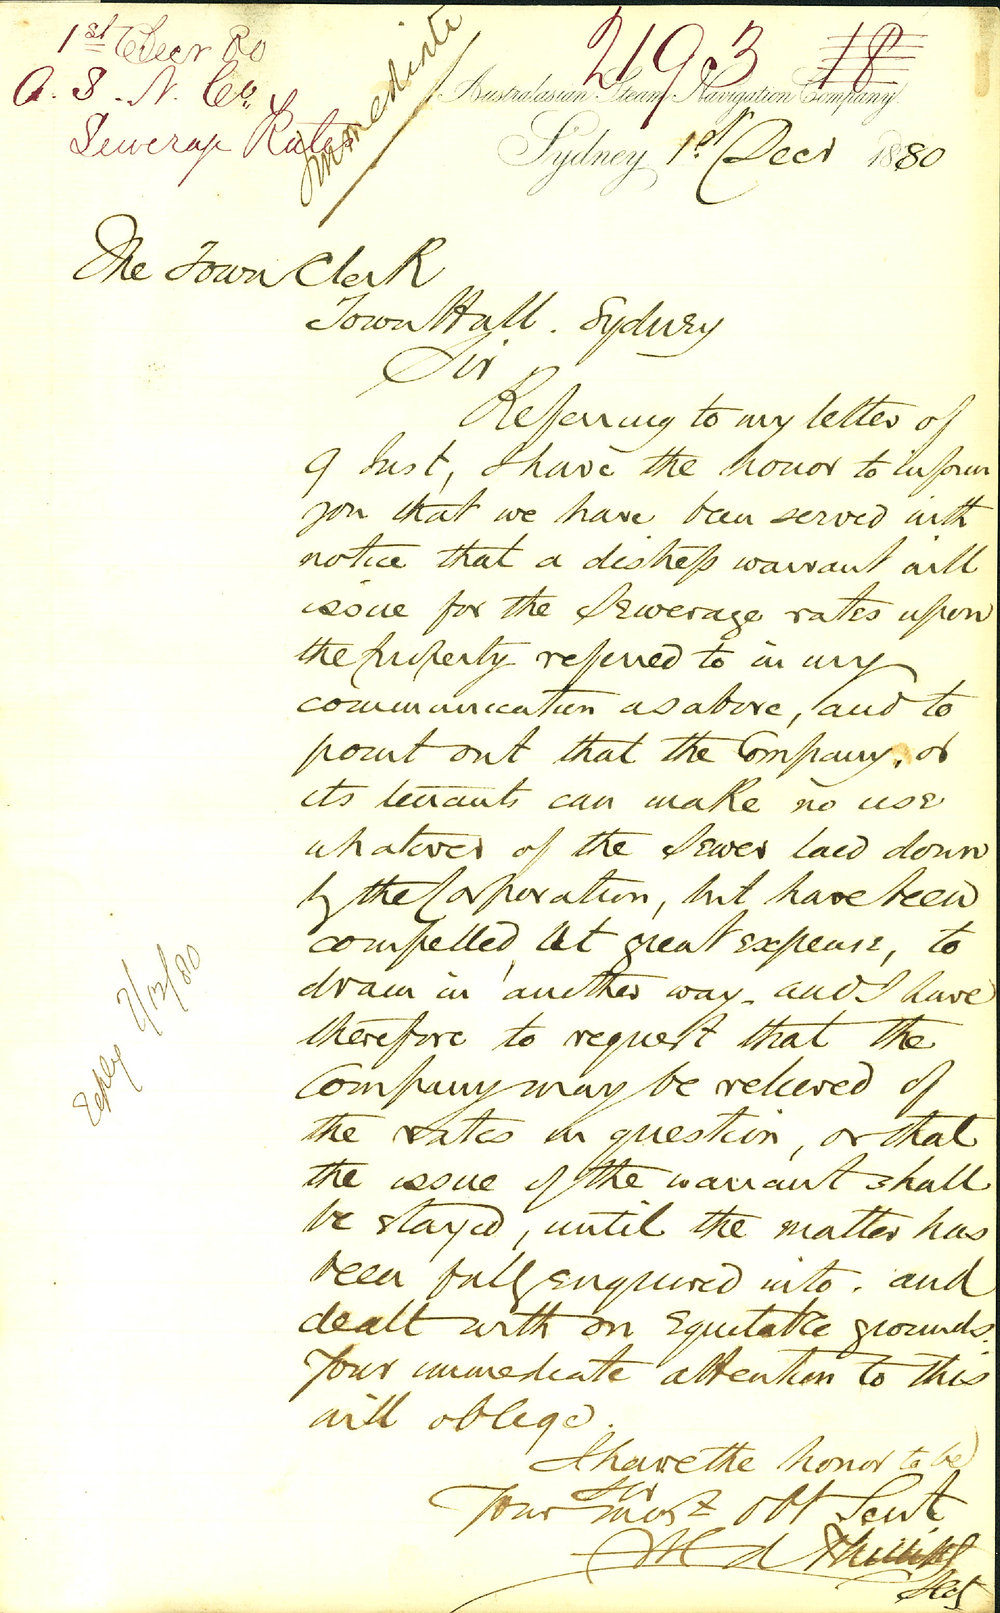 1st Decr 80
A. S. N. Co.
Sewerage Rates
Immediate
2193 18
Australasian Steam Navigation Company.
Sydney 1st Decr 1880
The Town Clerk
Town Hall. Sydney
Sir
Referring to my letter of
9 Inst, I have the honor to inform
you that we have been served with
notice that a distress warrant will
issue for the Sewerage rates upon
the property referred to in my
communication as above, and to
point out that the Company, or
its tenants can make no use
whatever of the Sewer laid down
by the Corporation, but have been
compelled, at great expense, to
drain in another way. and I have
therefore to request that the
Company may be relieved of
the rates in question, or that
the issue of the warrant shall
be stayed, until the matter has
been fully enquired into. and
dealt with on equitable grounds.
Your immediate attention to this
will oblige.
I have the honor to be
Sir
Your most obt Servt
Phillips
Secy
Reply 2/12/80